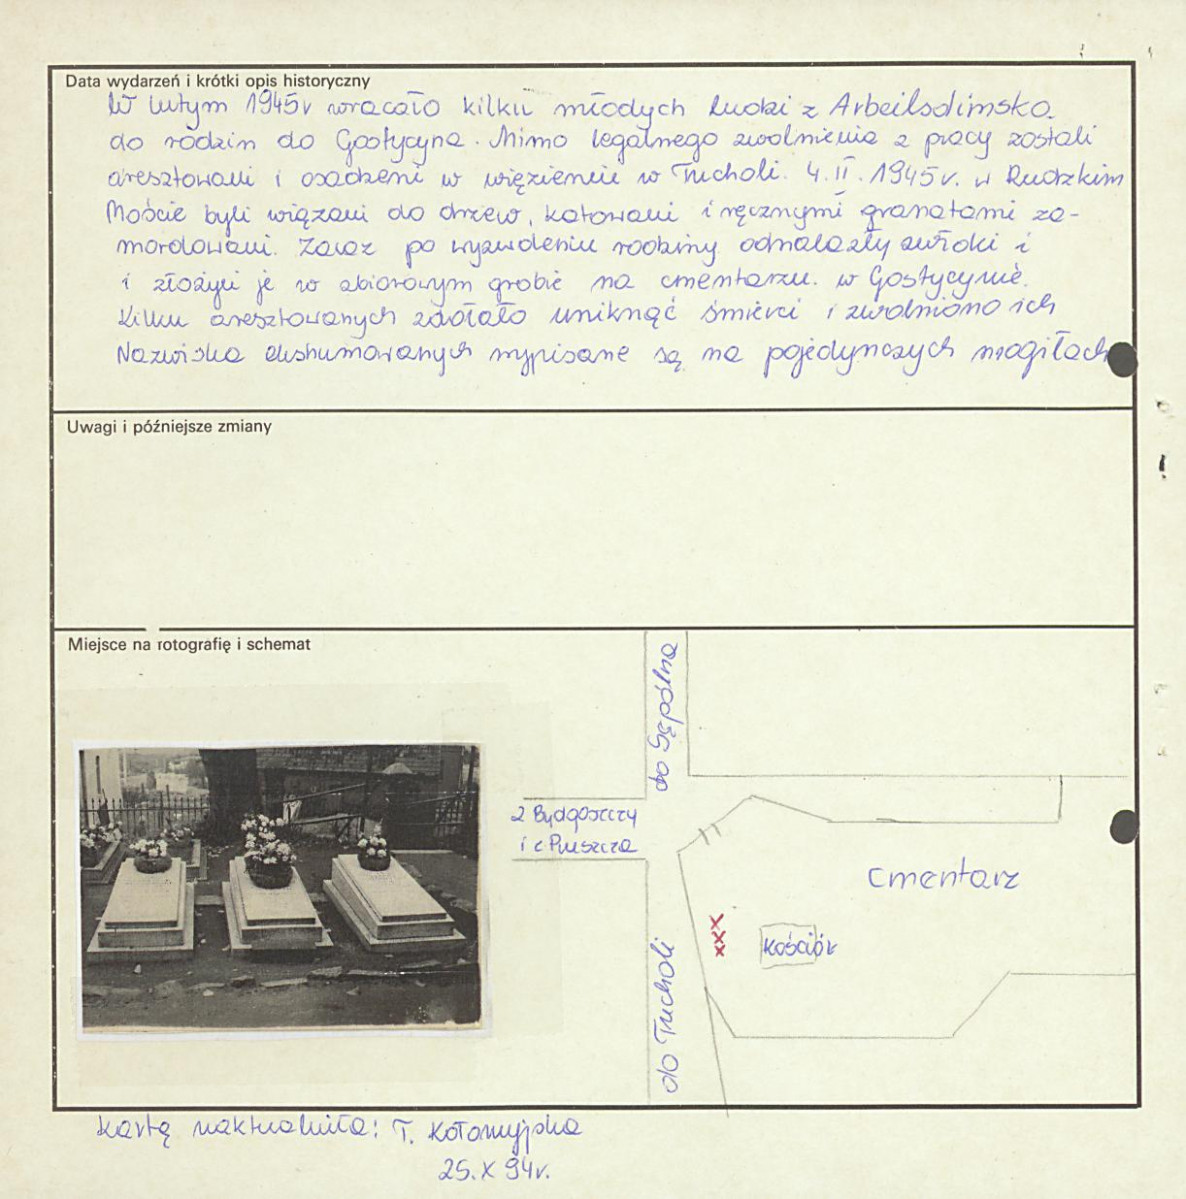 Data wydarzeń i krótki opis historyczny
W lutym 1945r wracało kilku młodych ludzi z Arbeitsdimsko.
do rodzin do Gostycyna. Mimo legalnego zwolnienia z pracy zostali
aresztowani i osadzeni w więzieniu w Tucholi. 4.II.1945r. w Rudzkim
Moście byli wiązani do drzew, katowani i ręcznymi granatami za-
mordowani. Zaraz po wyzwoleniu rodziny odnalazły zwłoki i
i złożyli je w zbiorowym grobie na cmentarzu. w Gostycynie.
Kilku aresztowanych zdołało uniknąć śmierci i zwolniono ich
Nazwiska ekshumowanych wypisane są na pojedynczych mogiłach
Uwagi i późniejsze zmiany
Miejsce na fotografię i schemat
do Sępólna
z Bydgoszczy
i z Pruszcza
cmentarz
xxx
kościół
do Tucholi
kartę uaktualniła: T. Kołomyjska
25.X 94r.